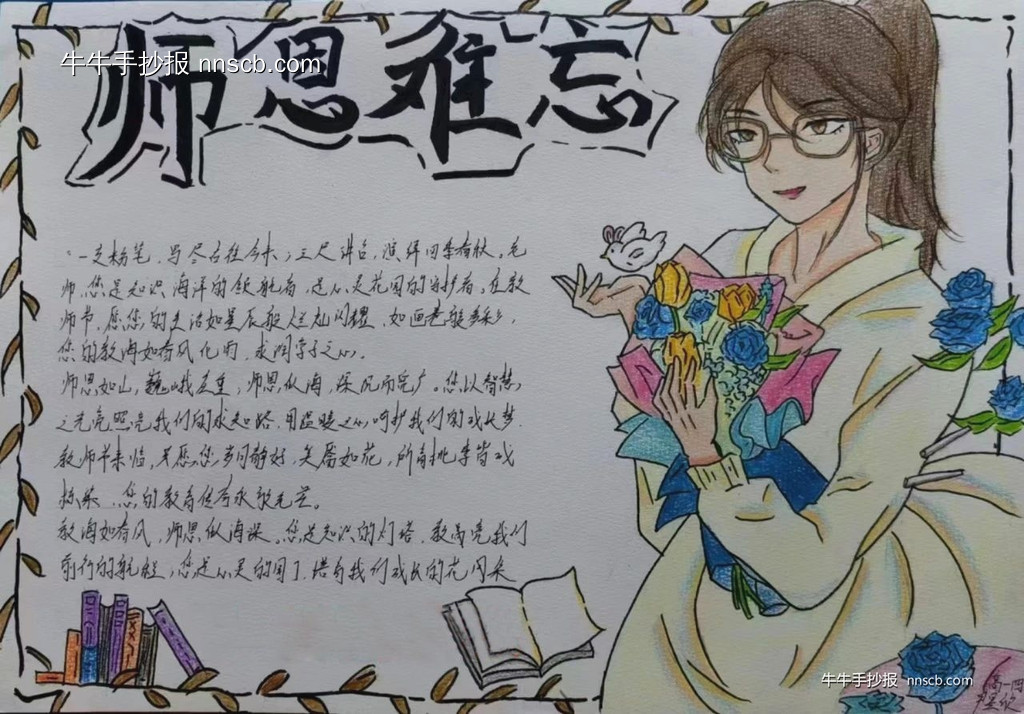 师恩难忘
牛牛手抄报 nnscb.com
一支粉笔，写尽古往今来；三尺讲台，演绎四季春秋。老
师，您是知识海洋的领航者，是心灵花园的守护者。在教
师节，愿您的生活如星辰般灿烂闪耀，如画卷般多彩，
您的教诲如春风化雨，求润学子之心。
师恩如山，巍峨庄重，师恩似海，深沉而宽广。您以智慧
之光亮照亮我们的求知路，用温暖之心呵护我们的成长梦。
教师节来临，只愿您岁月静好，笑靥如花，所育桃李皆成
栋梁，您的教育传奇永放光芒。
教诲如春风，师恩似海深。您是知识的灯塔，照亮我们
前行的航程，您是心灵的园丁，培育我们成长的花
牛牛手抄报 nnscb.com
高一